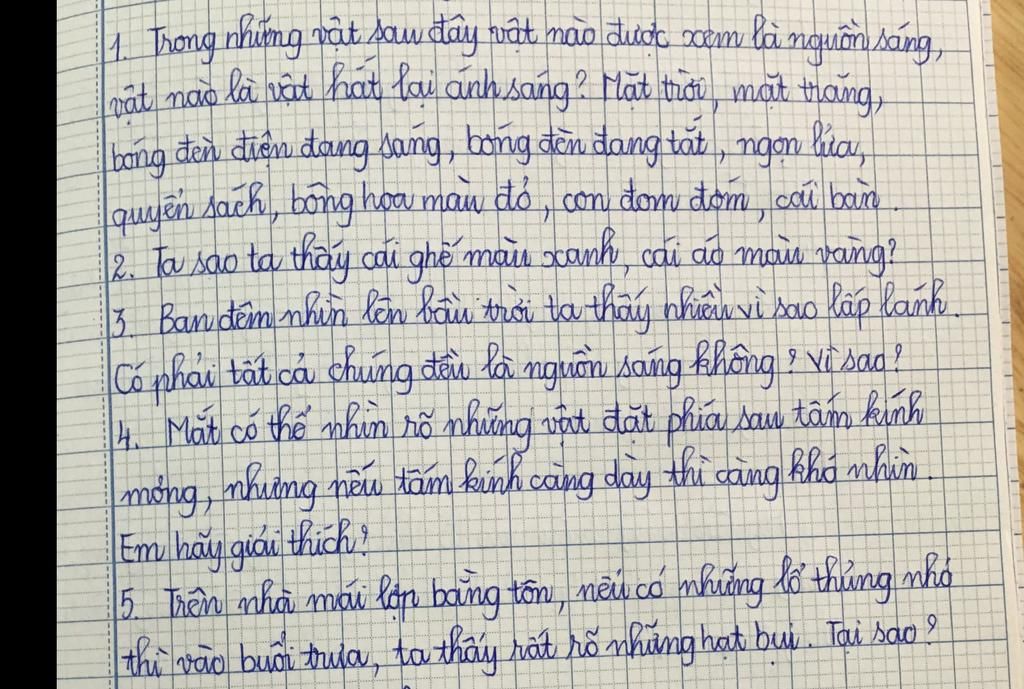 1. Trong những vật sau đây vật nào được xem là nguồn sáng,
vật nào là vật hắt lại ánh sáng? Mặt trời, mặt trăng,
bóng đèn điện đang sáng, bóng đèn đang tắt, ngọn lửa,
quyển sách, bông hoa màu đỏ, con đom đóm, cái bàn.
2. Ta sao ta thấy cái ghế màu xanh, cái áo màu vàng?
3. Ban đêm nhìn lên bầu trời ta thấy nhiều vì sao lấp lánh.
Có phải tất cả chúng đều là nguồn sáng không? Vì sao?
4. Mắt có thể nhìn rõ những vật đặt phía sau tấm kính
mỏng, nhưng nếu tấm kính càng dày thì càng khó nhìn.
Em hãy giải thích?
5. Trên nhà mái lợp bằng tôn, nếu có những lỗ thủng nhỏ
thì vào buổi trưa, ta thấy rất rõ những hạt bụi. Tại sao?